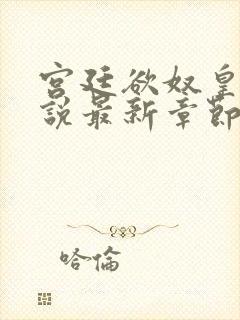 宫廷欲奴皇
說最新章節
哈倫